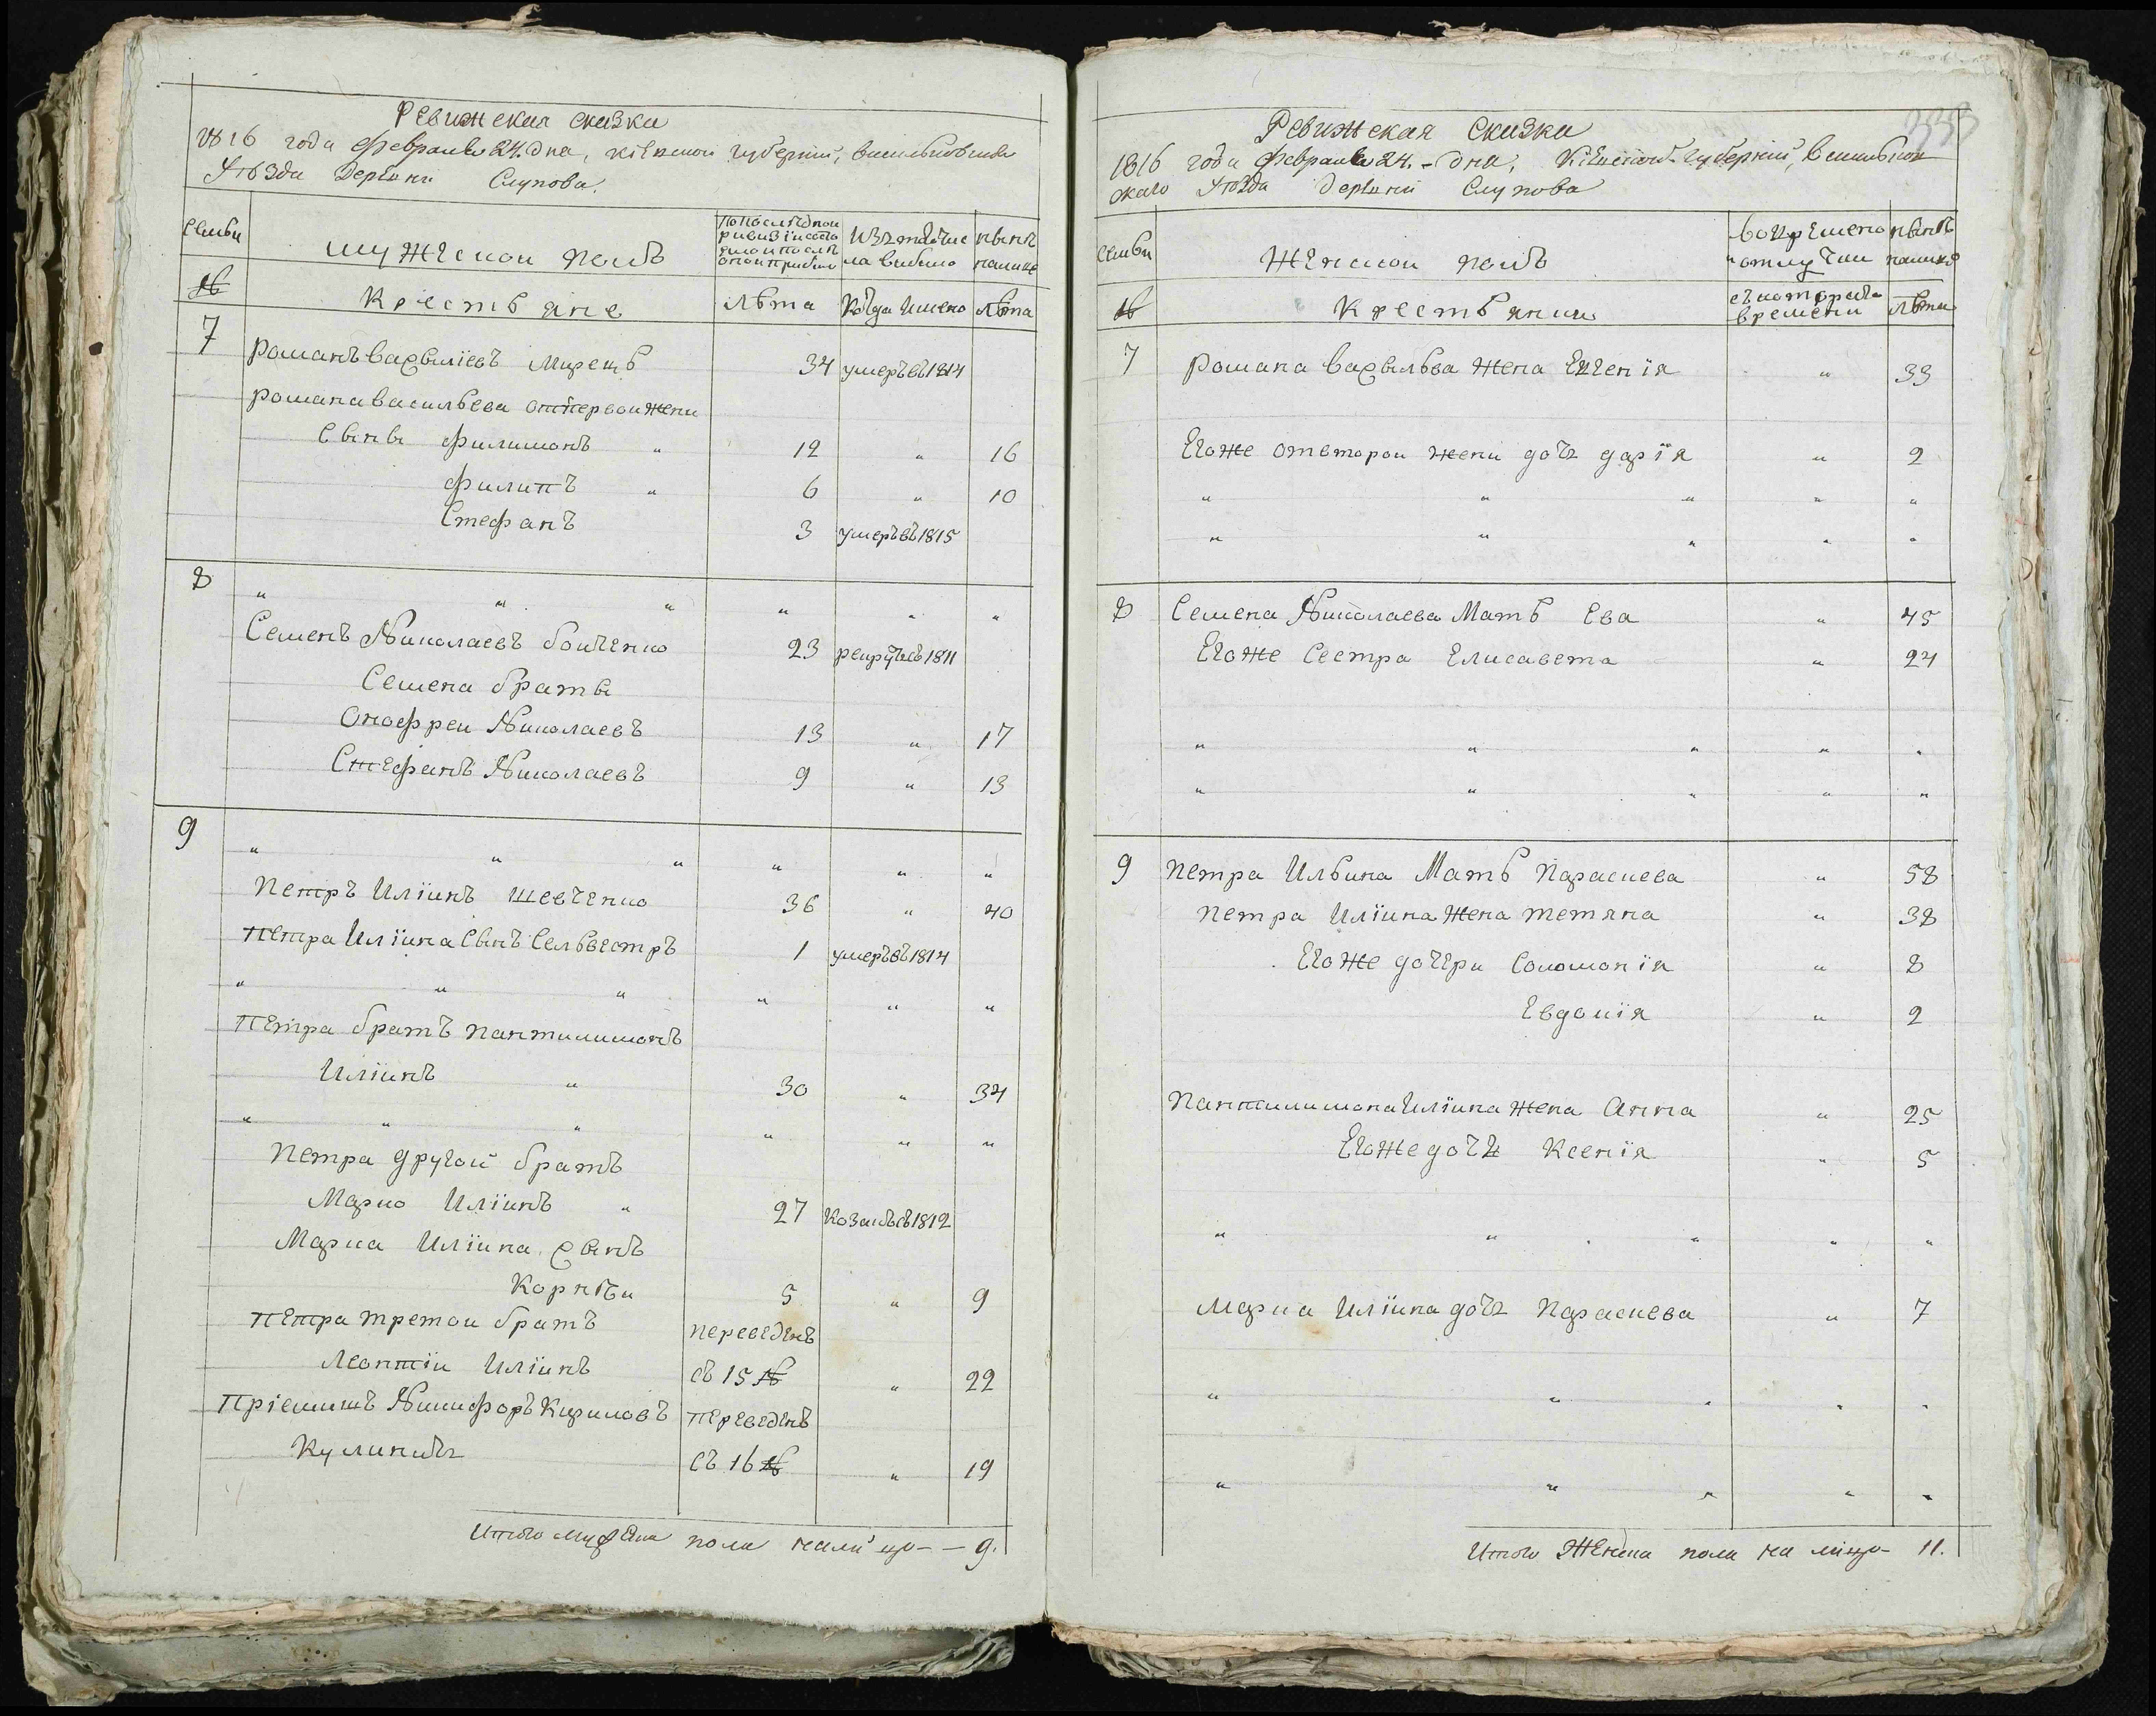 Ревижская сказка
1816 года февраля 24. дня, кіевской губерній, васильковскаго
Уѣзда деревни Слупова.
Семьи
мужескои полъ
По последнои ревизіи состояло и после онои прибыло
Изътого числа выбыло
нынѣ налице
№
Крестьяне
Лѣта
Когда имено
лѣта
7
Романъ васильіевъ Мирецъ 34 умеръвъ1814
Романа васильева отпервои жени
Сынъі филимонъ " 12 " 16
филипъ " 6 " 10
Стефанъ 3 умеръвъ1815
8
" " " " " "
Семенъ Николаевъ боиченко 23 рекрутъсъ1811
Семена братьі
Онофреи Николаевъ 13 " 17
Стефанъ Николаевъ 9 " 13
9
" " " " " "
Петръ Иліинъ шевченко 36 " 40
Петра Иліина Сынъ Селвестръ 1 умеръвъ1814
" " " " " "
Петра братъ пантилимонъ
Иліинъ " 30 " 34
" " " " " "
Петра другой братъ
Марко Иліинъ " 27 Козакъсъ1812
Марка Иліина сынъ
Корнѣи 5 " 9
Петра третои братъ переведенъ
Леонтіи Иліинъ съ 15 № " 22
Пріемишъ Никифоръ Кириловъ переведенъ
Куличичъ съ 16 № " 19
Итого мужеска пола налицо - - 9.
Ревижская Сказка
1816 года февраля 24. - дня, Кіевской Губерній, васильков
скаго Уѣзда деревни Слупова
Семьи
Женскои полъ
Вовременои отлучки
нынѣ налице
№
Крестьянки
съ котораго времени
лѣта
7 Романа васильева жена Евгенія " 33
Егоже отвторои жени дочь дарія " 2
" " " " "
" " " " "
8 Семена Николаева Мать Ева " 45
Егоже Сестра Елисавета " 24
" " " " "
" " " " "
9 Петра Ильина Мать Параскева " 58
Петра Иліина жена тетяна " 38
Егоже дочери Соломонія " 8
Евдокія " 2
Пантилимона Иліина жена Анна " 25
Егоже дочь Ксенія " 5
" " " " "
Марка Иліина дочь Параскева " 7
" " " " "
" " " " "
Итого Женска пола на лицо - 11.